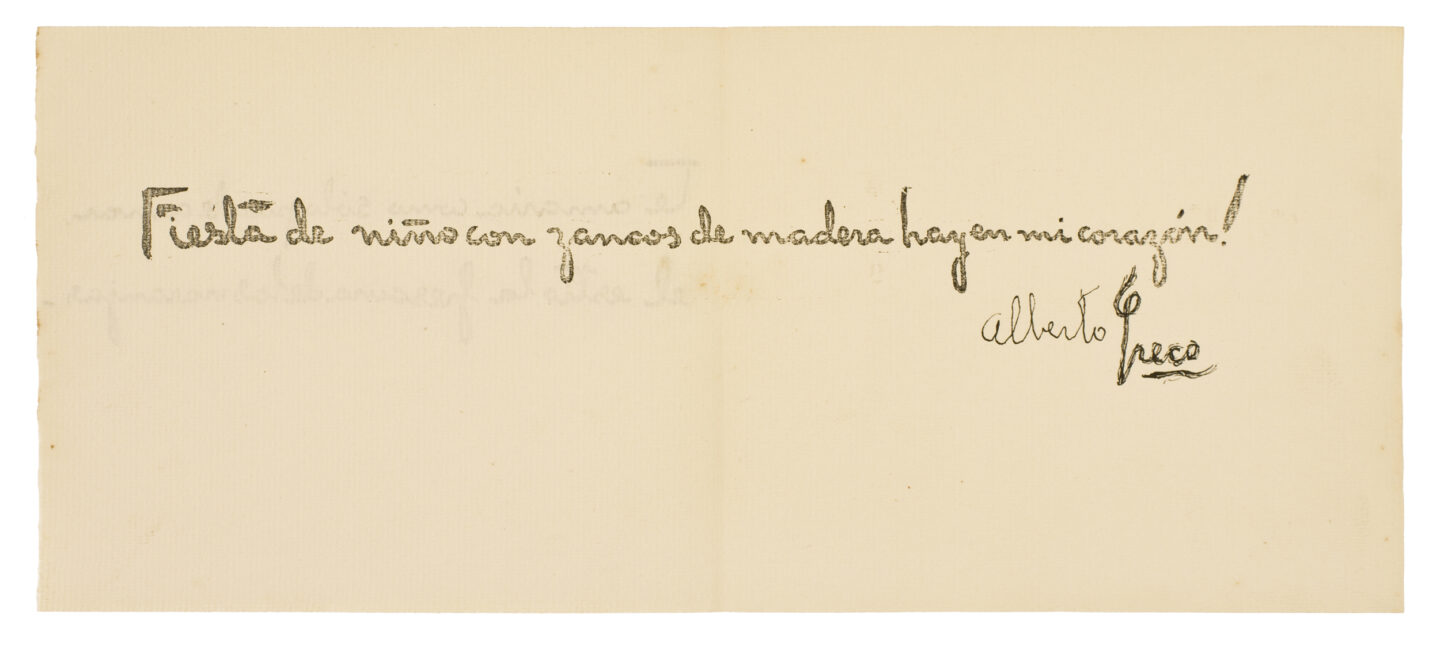 Fiesta de niño con zancos de madera hay en mi corazón!
Alberto Greco